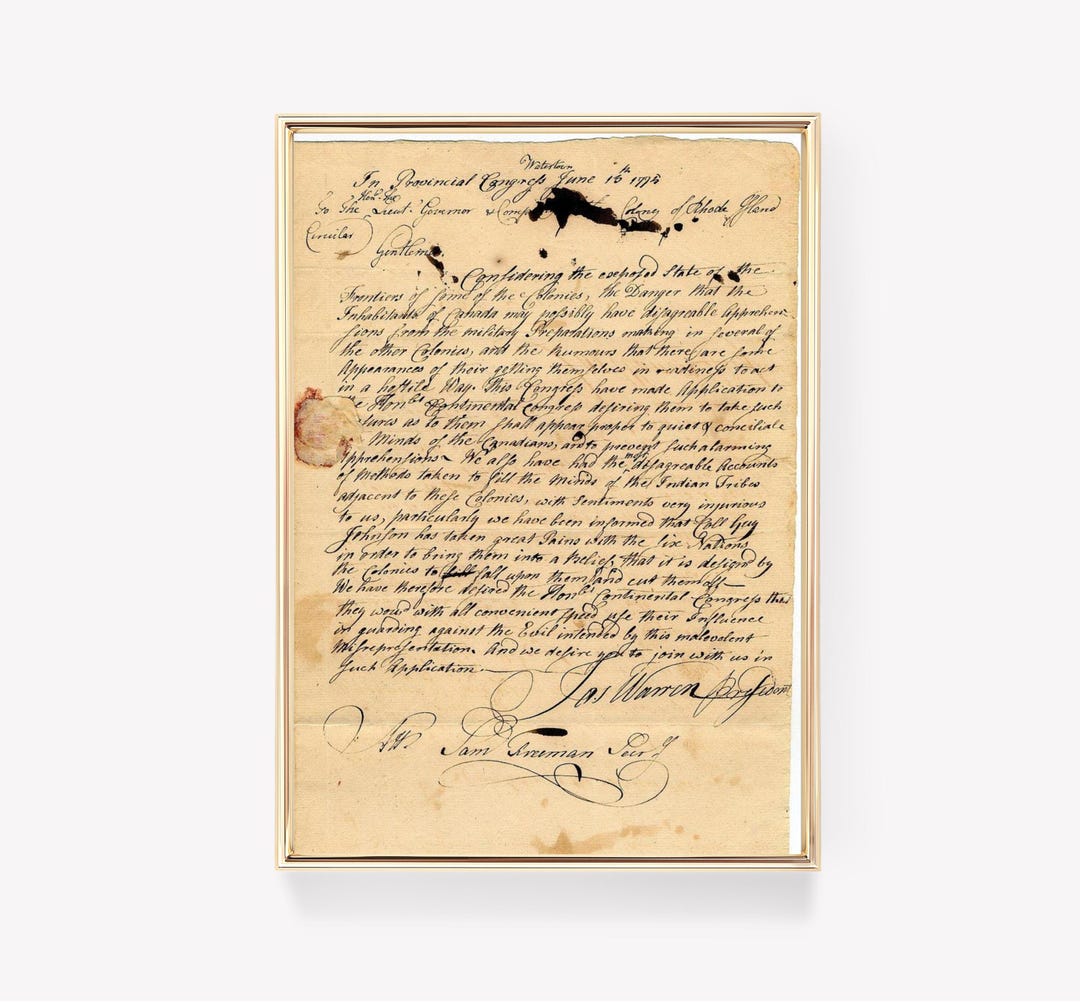 Watertown
In Provincial Congress June 13th 1775
Honble the
To The Lieut. Governor & Comp Colony of Rhode Island
Circular
Gentlem
Considering the exposed State of the
Frontiers of some of the Colonies, the Danger that the
Inhabitants of Canada may possibly have disagreable Apprehen-
sions from the military Preparations making in several of
the other Colonies, and the Rumours that there are some
Appearances of their getting themselves in readiness to act
in a hostile Way. This Congress have made Application to
e Honble Continental Congress desiring them to take such
sures as to them shall appear proper to quiet & conciliate
Minds of the Canadians, and to prevent such alarming
Apprehensions. We also have had the most disagreable Accounts
of Methods taken to fill the minds of the Indian Tribes
adjacent to these Colonies, with Sentiments very injurious
to us, particularly we have been informed that Coll Guy
Johnson has taken great Pains with the Six Nations
in order to bring them into a Belief, that it is design'd by
the Colonies to fall upon them and cut them off—
We have therefore desired the Honble Continental Congress that
they would with all convenient speed use their Influence
in guarding against the Evil intended by this malevolent
Misrepresentation. And we desire you to join with us in
such Application.—
Jas Warren President
Attt Saml Freeman Secry